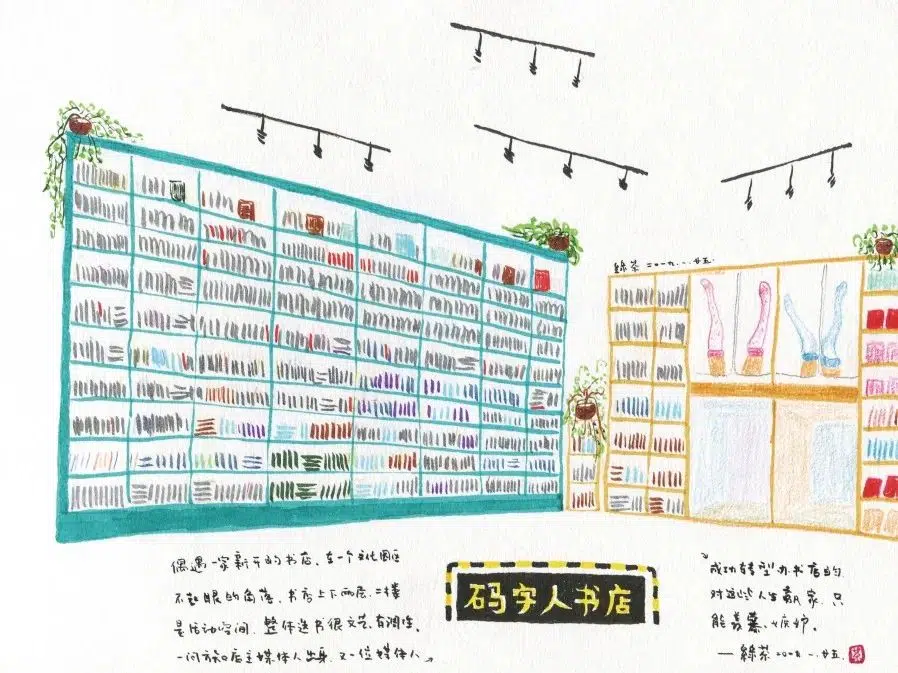 綠茶 二〇一九.一.廿五.
偶遇一家新开的书店.在一个文化园区
不起眼的角落.书店上下两层.二楼
是活动空间.整体选书很文艺.有调性.
一问方知店主媒体人出身.又一位媒体人
码字人书店
成功转型办书店的.
对这些人生赢家.只
能羡慕、嫉妒.
—綠茶 二〇一九.一.廿五.